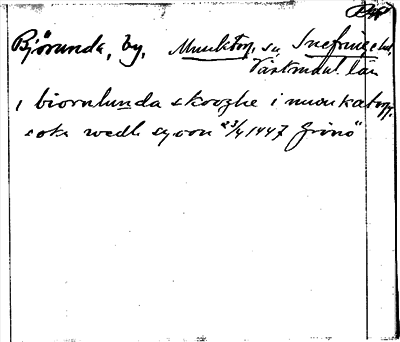 Björunda, by, Munktorp sn, Snefringe hd,
Västmanl. län
i biornlunda skooghe i munkatorp
sokn wedh syoon 23/4 1447 Grönö"